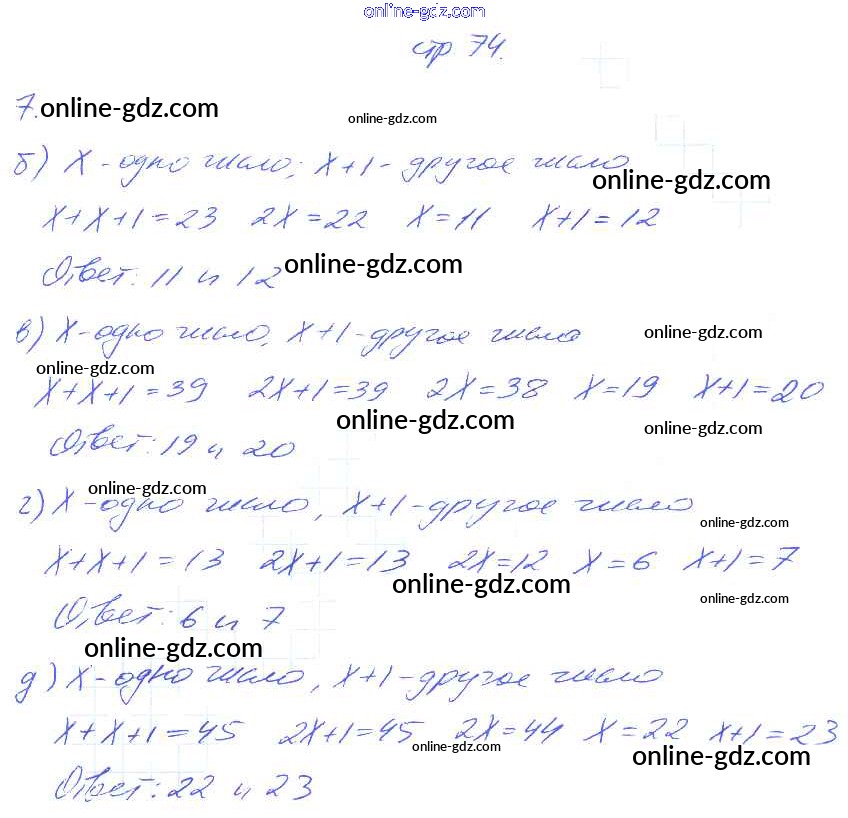 online-gdz.com
стр 74.
7. online-gdz.com online-gdz.com
б) x - одно число; x+1 - другое число
online-gdz.com
x+x+1=23 2x=22 x=11 x+1=12
Ответ: 11 и 12 online-gdz.com
в) x - одно число, x+1 - другое число online-gdz.com
online-gdz.com
x+x+1=39 2x+1=39 2x=38 x=19 x+1=20
online-gdz.com online-gdz.com
Ответ: 19 и 20
online-gdz.com
г) x - одно число, x+1 - другое число
online-gdz.com
x+x+1=13 2x+1=13 2x=12 x=6 x+1=7
online-gdz.com online-gdz.com
Ответ: 6 и 7
online-gdz.com
д) x - одно число, x+1 - другое число
x+x+1=45 2x+1=45 2x=44 x=22 x+1=23
online-gdz.com online-gdz.com
Ответ: 22 и 23